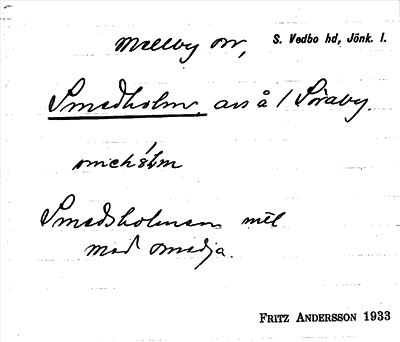 Mellby sn, S. Vedbo hd, Jönk. l.
Smedholm, avs å / Söraby.
smehólm
Smedsholmen mtl
med smedja.
FRITZ ANDERSSON 1933